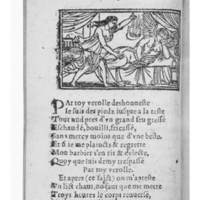 Par toy verolle deshonneste
Je suis des piedz jusques a la teste
Tout aupres d'un grand feu gressé
Eschaudé, bouilli, fricassé,
Sans mercy moins que d'une beste.
Et si te me plaictz & regrette
Mon barbier s'en rit & deleste,
Quoy que suis demy trespassé
Par toy verolle.
Et apres (ce faict) on m'areste
En lict chaut, no faut que me mette
Troys heures le corps renversé,